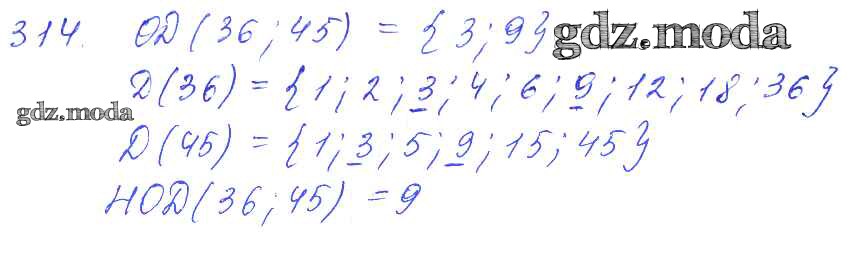 314. OD(36;45) = {3;9} gdz.moda
D(36) = {1;2;3;4;6;9;12;18;36}
gdz.moda
D(45) = {1;3;5;9;15;45}
HOD(36;45) = 9